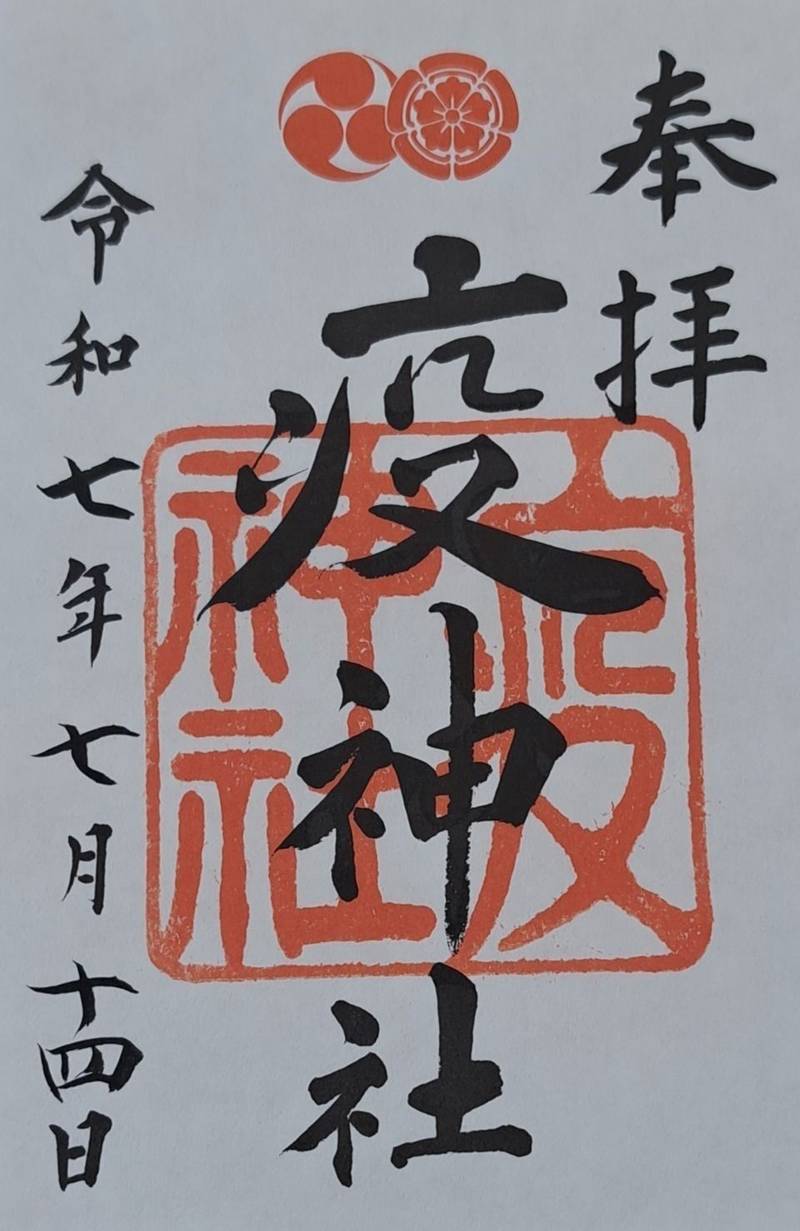 奉拝
疫神社
疫神社
令和七年七月十四日